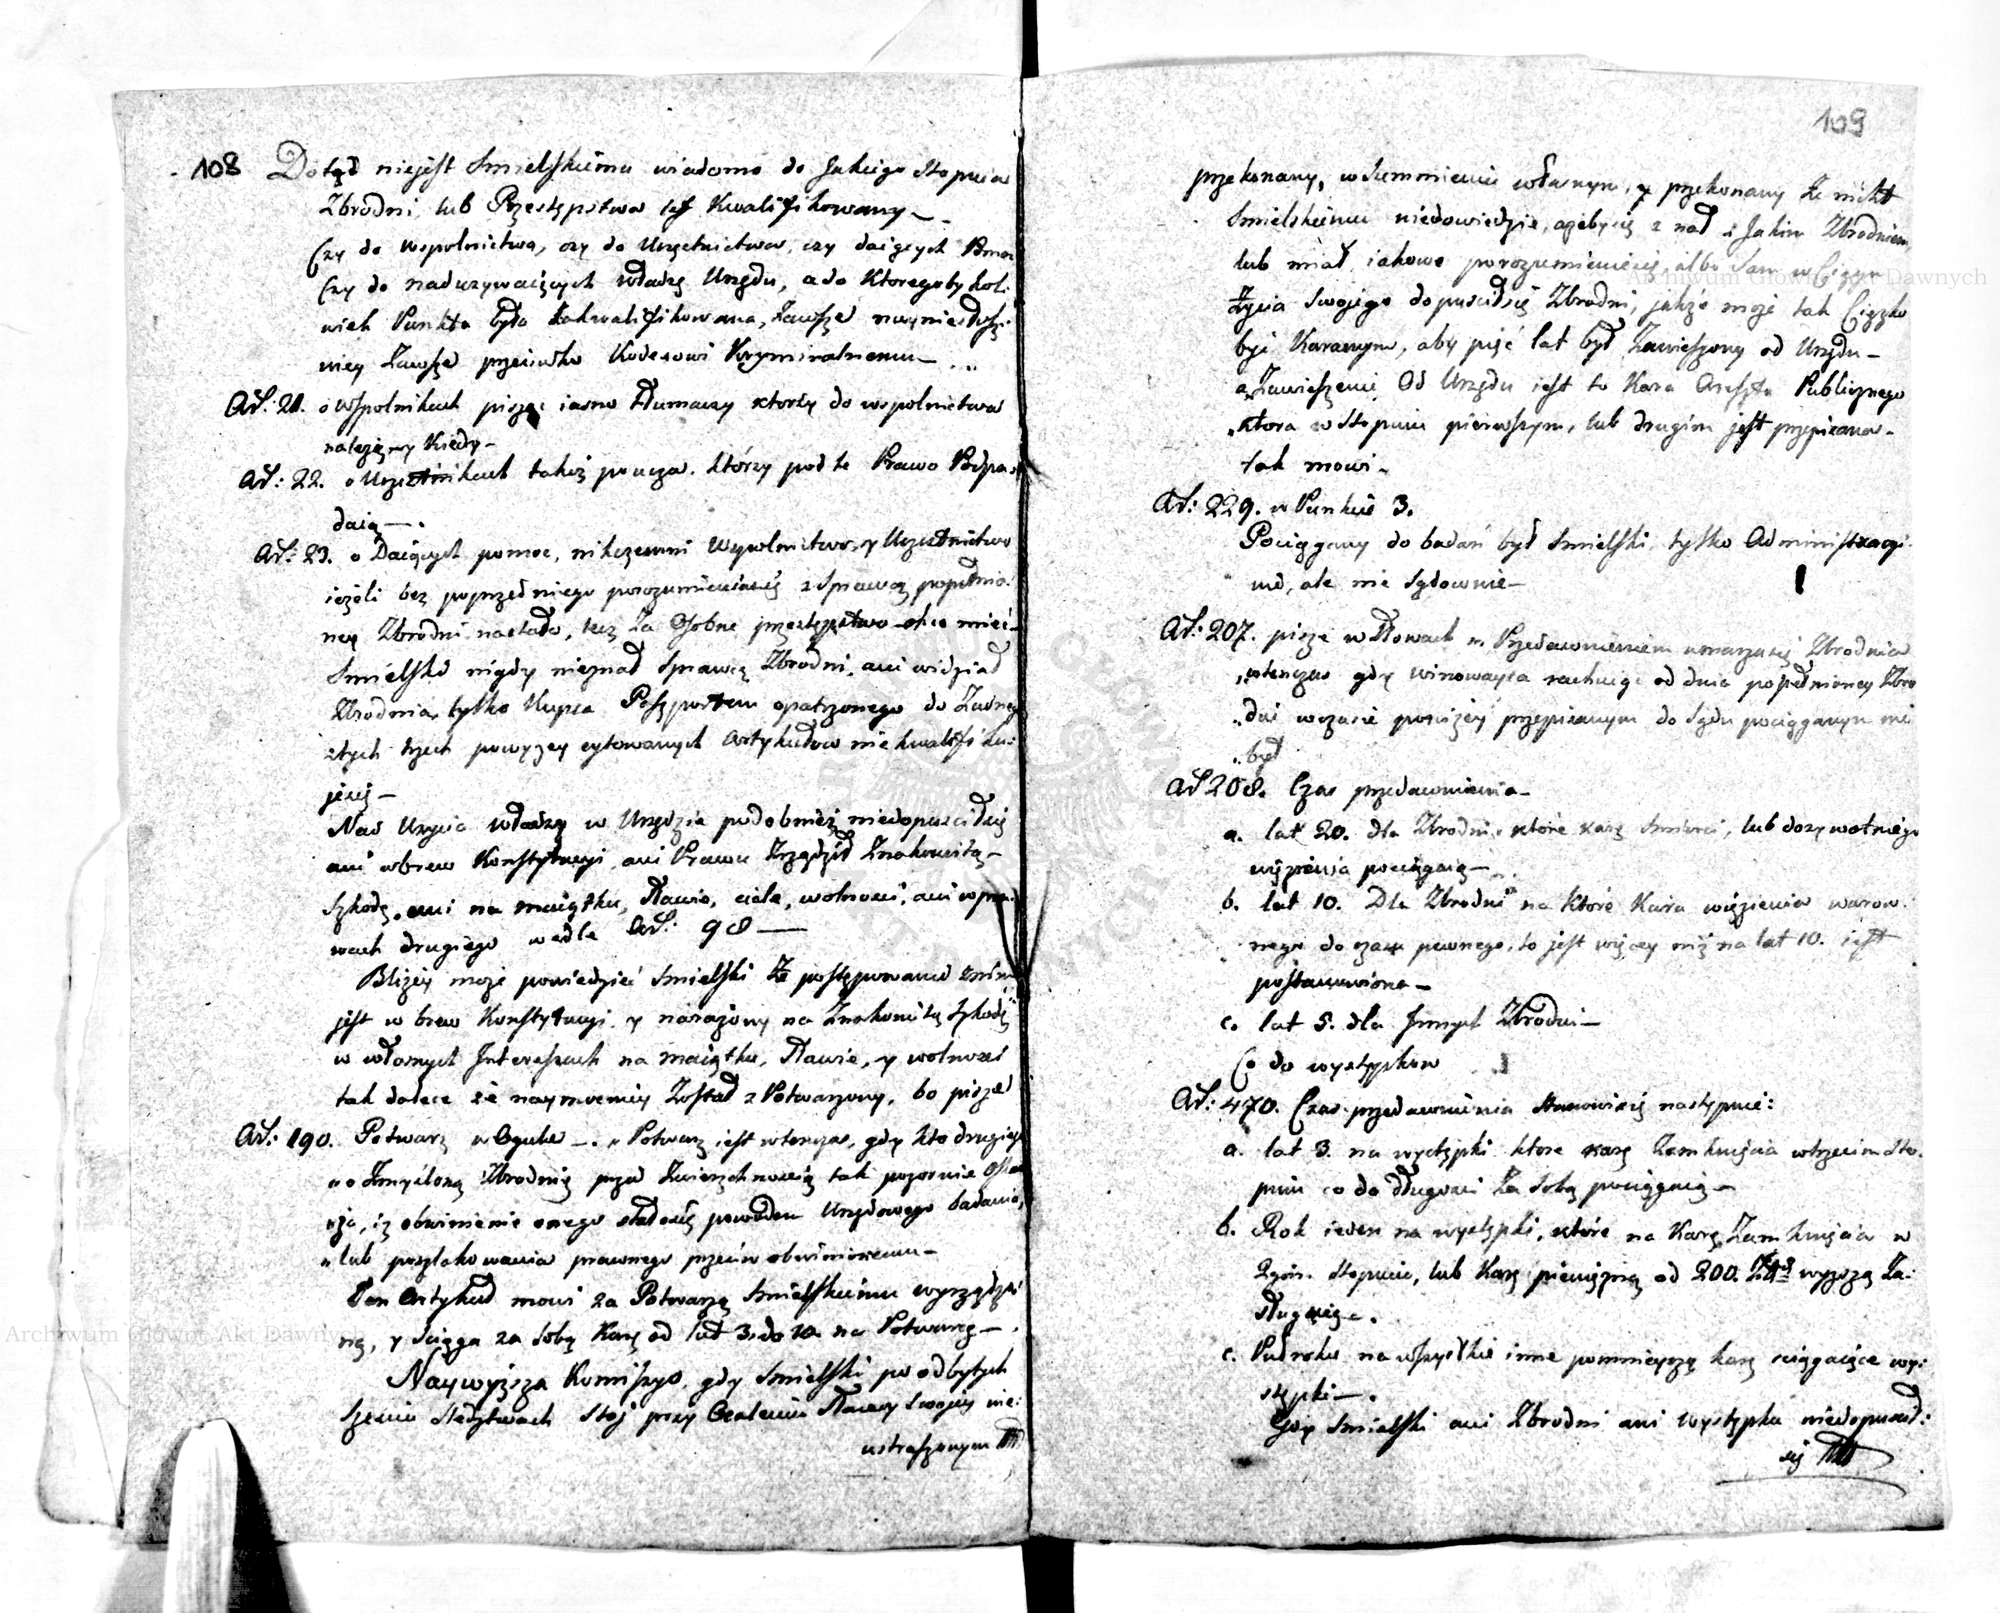 108 Dotąd niejest Smielskiemu wiadomo do Jakiego Stopnia
Zbrodni lub Przestępstwa jest Kwalifikowany —
Czy do wspolnictwa, czy do Uczęstnictwa, czy daiących Pomoc
Czy do naduzywaiących władzę Urzędu, a do Ktoregobykol:
wiek Punktu była zakwalifikowana, Zawsze
Zawsze przeciwko Kodexowi Kryminalnemu —
Art. 21. o wspolnikach pisząc iasno tłumaczy ktorzy do wspolnictwa
należą, y Kiedy —
Art: 22. o Uczestnikach takiż poucza. którzy pod te Prawo Podpa:
daią —.
Art: 23. o Daiących pomoc, Wspolnictwo, y Uczestnictwo
ieżeli bez poprzedniego porozumieniasię z Sprawcą popełnio:
ney Zbrodni nastało, lecz Za Osobne przestępstwo chce mieć —
Smielski nigdy nieznał Sprawcę Zbrodni, ani widział
Zbrodnia, tylko Kupca Paszportem opatrzonego do Żadnego
ztych trzech powyzey cytowanych Artykułow niekwalifiku:
jesię —
Nad Uzycia władzy w Urzędzie podobnież niedopuściłsię
ani wbrew Konstytucyi, ani Prawu Zrządził Znakomitą —
Szkodę, ani na maiątku, Sławie, ciele, wolności, ani w pra:
wach drugiego wedle Art: 98 —
Bliżey może powiedzieć Smielski że postępowanie znim
jest w brew Konstytucyi, y narażony na Znakomitą Szkodę
w własnych Interessach na maiątku, Sławie, y wolności
tak dalece że naymocniey Został z Potwarzony, bo pisze
Art: 190. Potwarz w Ogule —. „Potwarz iest wtenczas, gdy kto drugiego
„o Zmysloną Zbrodnię przed Zwierzchnością tak pozornie Oskar
„ża, iż obwinienie onego stałosię powodem Urzędowego badania,
„lub poszlakowania prawnego przeciw obwinionemu —
Ten Artykuł mowi za Potwarzą Smielskiemu wyrządzo:
ną, y Sciąga za Sobą Karę od lat 3. do 10. na Potwarcę —.
Naywyższa Kommissyo, gdy Smielski po odbytych
Sledztwach Stoj przy Ocaleniu Sławy Swojej nie:
ustraszonym
109
przekonany, w Sumnieniu własnym, y przekonany że nikt
Smielskiemu niedowiedzie, ażebysię znał z Jakim Zbrodniem
lub miał iakowe porozumieniesię, albo Sam w Ciągu
Życia Swojego dopuściłsię Zbrodni, jakże może tak Ciężko
byi Karanym, aby pięć lat był Zawieszony od Urzędu —
a Zawieszenie Od Urzędu iest to Kara Aresztu Publicznego
„Ktora w Stopniu pierwszym, lub drugim jest przepisana —
tak mowi —
Art: 229. w Punkcie 3.
Pociągany do badań był Smielski, tylko Administracyi:
nie, ale nie Sądownie —
Art: 207. pisze w Słowach „Przedawnieniem umarzasię Zbrodnia
„wtenczas gdy winowayca rachuiąc od dnia popełnioney Zbro
„dni w czasie poniżey przepisanym do Sądu pociąganym nie
„był
Art 208. Czas przedawnienia —
a. lat 20. dla Zbrodni, które karę Smierci, lub dozywotniego
więzienia pociągaią —
b. lat 10. Dla Zbrodni na Które Kara więzienia warow:
nego do czasu pewnego, to jest więcey niż na lat 10. iest
postanowiona —
c. lat 5. dla Innych Zbrodni —
Co do występkow
Art: 470. Czas przedawnienia Stanowisię następnie:
a. lat 3. na występki ktore karę Zamknięcia wtrzecim Sto:
pniu co do długości Za Sobą pociągaią —
b. Rok ieden na występki, które na Karę Zamknięcia w
2gim. Stopniu, lub Karę pieniężną od 200. Złł wyższą Za:
sługuią —.
c. Pułroku na wszystkie inne pomnieyszą karę sciągaiące wy:
stępki —.
Gdy Smielski ani Zbrodni ani Występku niedopuścił:
się
Archiwum Główne Akt Dawnych
Archiwum Główne Akt Dawnych